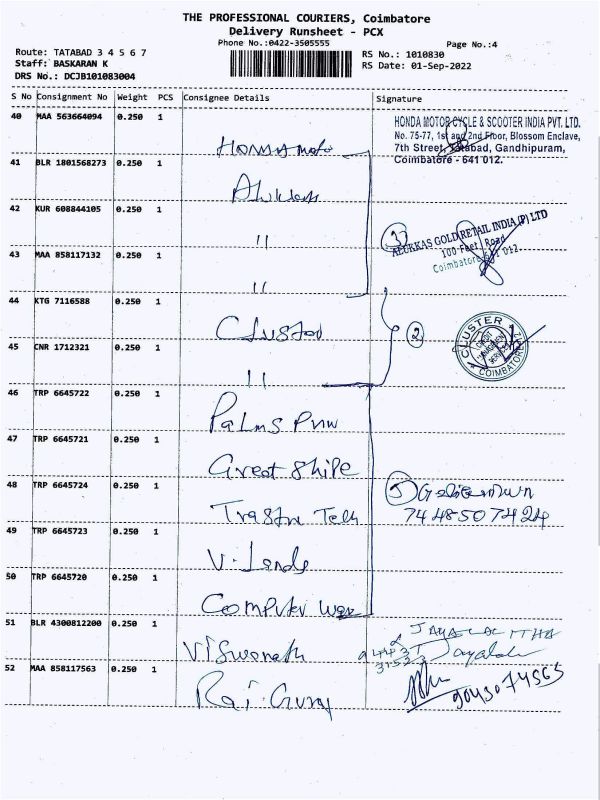 THE PROFESSIONAL COURIERS, Coimbatore
Delivery Runsheet - PCX
Phone No.:0422-3505555
Page No.:4
Route: TATABAD 3 4 5 6 7
Staff: BASKARAN K
DRS No.: DCJB101083004
RS No.: 1010830
RS Date: 01-Sep-2022
S No Consignment No Weight PCS Consignee Details Signature
40 MAA 563664094 0.250 1
HONDA MOTOR CYCLE & SCOOTER INDIA PVT. LTD.
No. 75-77, 1st and 2nd Floor, Blossom Enclave,
7th Street, Tatabad, Gandhipuram,
Coimbatore - 641 012.
Honda moto
41 BLR 1801568273 0.250 1
42 KUR 608844105 0.250 1
"
3
ALUKKAS GOLD RETAIL INDIA (P) LTD
100 Feet Road
Coimbatore 641 012.
43 MAA 858117132 0.250 1
"
44 KTG 7116588 0.250 1
Cluster
2
CLUSTER
COIMBATORE
45 CNR 1712321 0.250 1
"
46 TRP 6645722 0.250 1
Palms
47 TRP 6645721 0.250 1
Great Shipe
48 TRP 6645724 0.250 1
5
7448507424
49 TRP 6645723 0.250 1
V. Lands
50 TRP 6645720 0.250 1
Computer
51 BLR 4300812200 0.250 1
Viswanath
JAYALALITHA
52 MAA 858117563 0.250 1
Raj Guru
9043074565